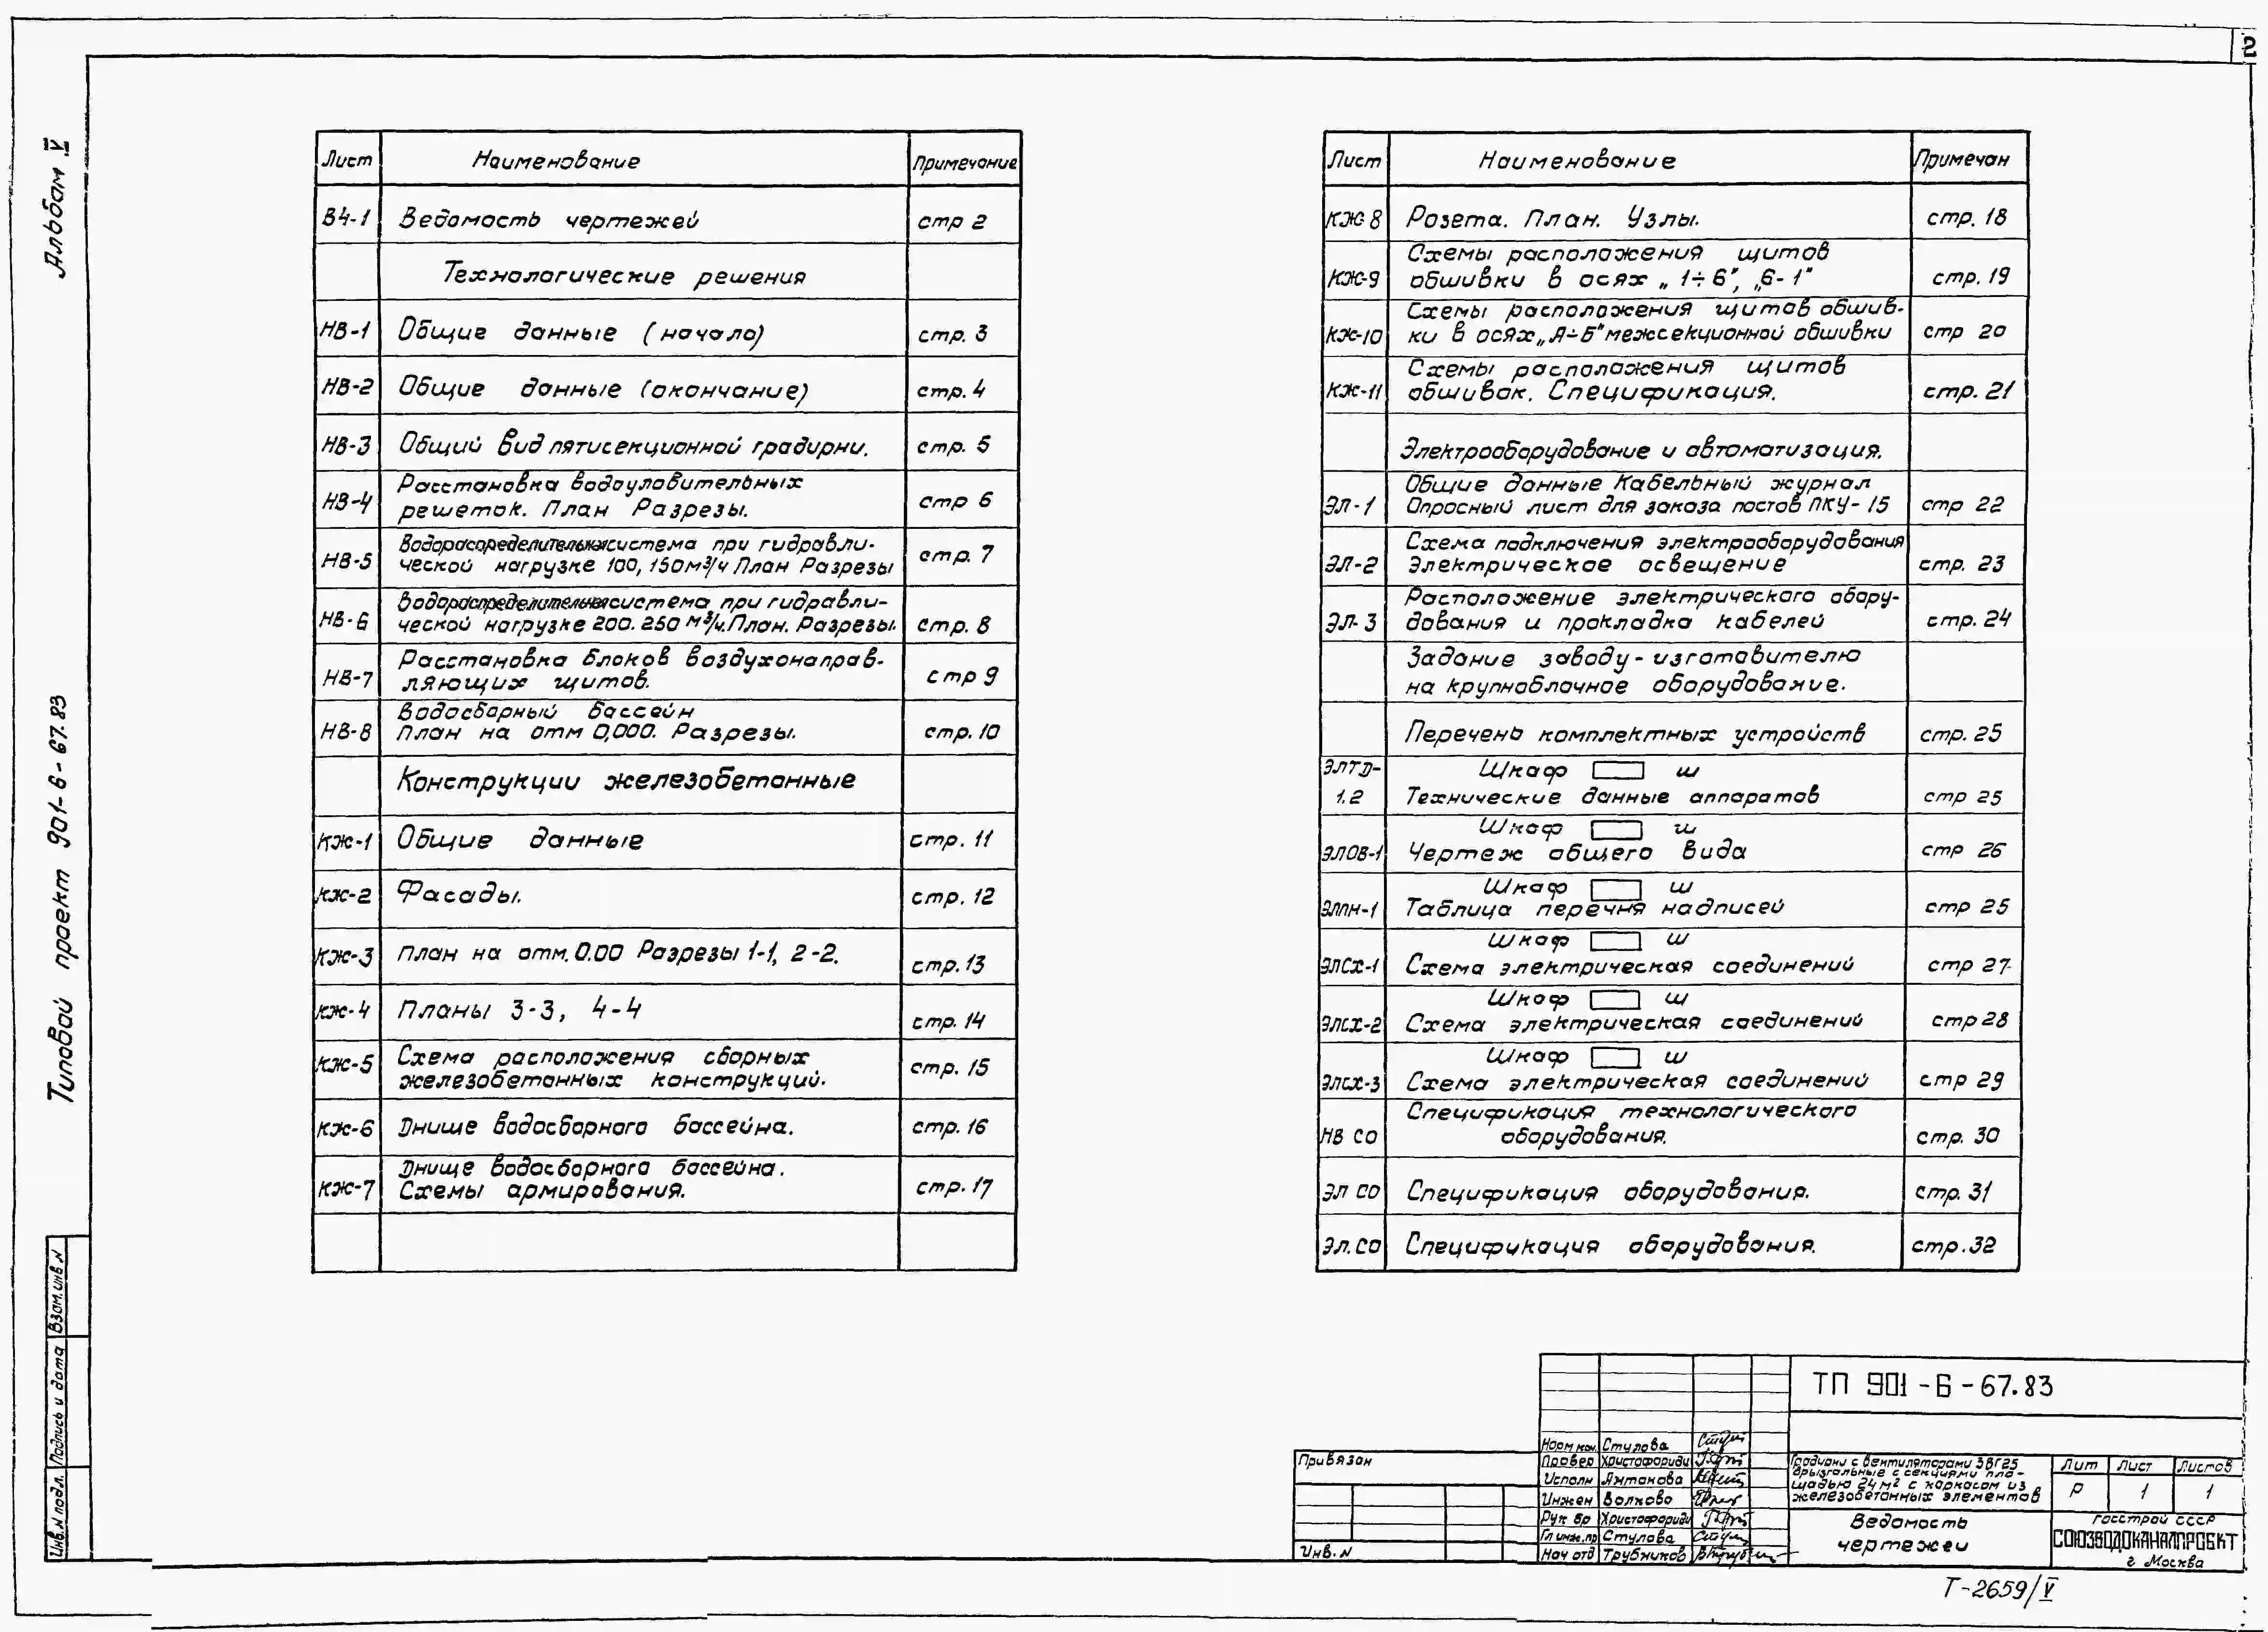 2
Альбом V
Типовой проект 901-6-67.83
Лист Наименование Примечание
ВЧ-1 Ведомость чертежей стр 2
Технологические решения
НВ-1 Общие данные (начало) стр. 3
НВ-2 Общие данные (окончание) стр. 4
НВ-3 Общий вид пятисекционной градирни. стр. 5
НВ-4 Расстановка водоуловительных
решеток. План Разрезы. стр 6
НВ-5 Водораспределительная система при гидравли-
ческой нагрузке 100, 150 м³/ч План Разрезы стр. 7
НВ-6 Водораспределительная система при гидравли-
ческой нагрузке 200. 250 м³/ч. План. Разрезы. стр. 8
НВ-7 Расстановка блоков воздухонаправ-
ляющих щитов. стр 9
НВ-8 Водосборный бассейн
План на отм 0,000. Разрезы. стр. 10
Конструкции железобетонные
КЖ-1 Общие данные стр. 11
КЖ-2 Фасады. стр. 12
КЖ-3 План на отм. 0.00 Разрезы 1-1, 2-2. стр. 13
КЖ-4 Планы 3-3, 4-4 стр. 14
КЖ-5 Схема расположения сборных
железобетонных конструкций. стр. 15
КЖ-6 Днище водосборного бассейна. стр. 16
КЖ-7 Днище водосборного бассейна.
Схемы армирования. стр. 17
Лист Наименование Примечан
КЖ-8 Розета. План. Узлы. стр. 18
КЖ-9 Схемы расположения щитов
обшивки в осях „1÷6", „6-1" стр. 19
КЖ-10 Схемы расположения щитов обшив-
ки в осях „А÷Б" межсекционной обшивки стр 20
КЖ-11 Схемы расположения щитов
обшивок. Спецификация. стр. 21
Электрооборудование и автоматизация.
ЭЛ-1 Общие данные Кабельный журнал
Опросный лист для заказа постов ПКУ-15 стр 22
ЭЛ-2 Схема подключения электрооборудования
Электрическое освещение стр. 23
ЭЛ-3 Расположение электрического обору-
дования и прокладка кабелей стр. 24
Задание заводу-изготовителю
на крупноблочное оборудование.
Перечень комплектных устройств стр. 25
ЭЛТД- Шкаф ш
1.2 Технические данные аппаратов стр 25
Шкаф ш
ЭЛОВ-1 Чертеж общего вида стр 26
Шкаф ш
ЭЛПН-1 Таблица перечня надписей стр 25
Шкаф ш
ЭЛСХ-1 Схема электрическая соединений стр 27
Шкаф ш
ЭЛСХ-2 Схема электрическая соединений стр 28
Шкаф ш
ЭЛСХ-3 Схема электрическая соединений стр 29
НВ СО Спецификация технологического
оборудования. стр. 30
ЭЛ СО Спецификация оборудования. стр. 31
ЭЛ. СО Спецификация оборудования. стр. 32
Инв. N подл. Подпись и дата Взам. инв N
ТП 901-6-67.83
Привязан
Инв. N
Норм кон. Стулова
Провер Христофориди
Исполн Антакова
Инжен Волкова
Рук бр Христофориди
Гл инж. пр Стулова
Нач отд Трубников
Градирни с вентиляторами 3ВГ25
брызгальные с секциями пло-
щадью 24 м² с каркасом из
железобетонных элементов
Лит Лист Листов
Р 1 1
Ведомость
чертежей
Госстрой СССР
СОЮЗВОДОКАНАЛПРОЕКТ
г Москва
Т-2659/V